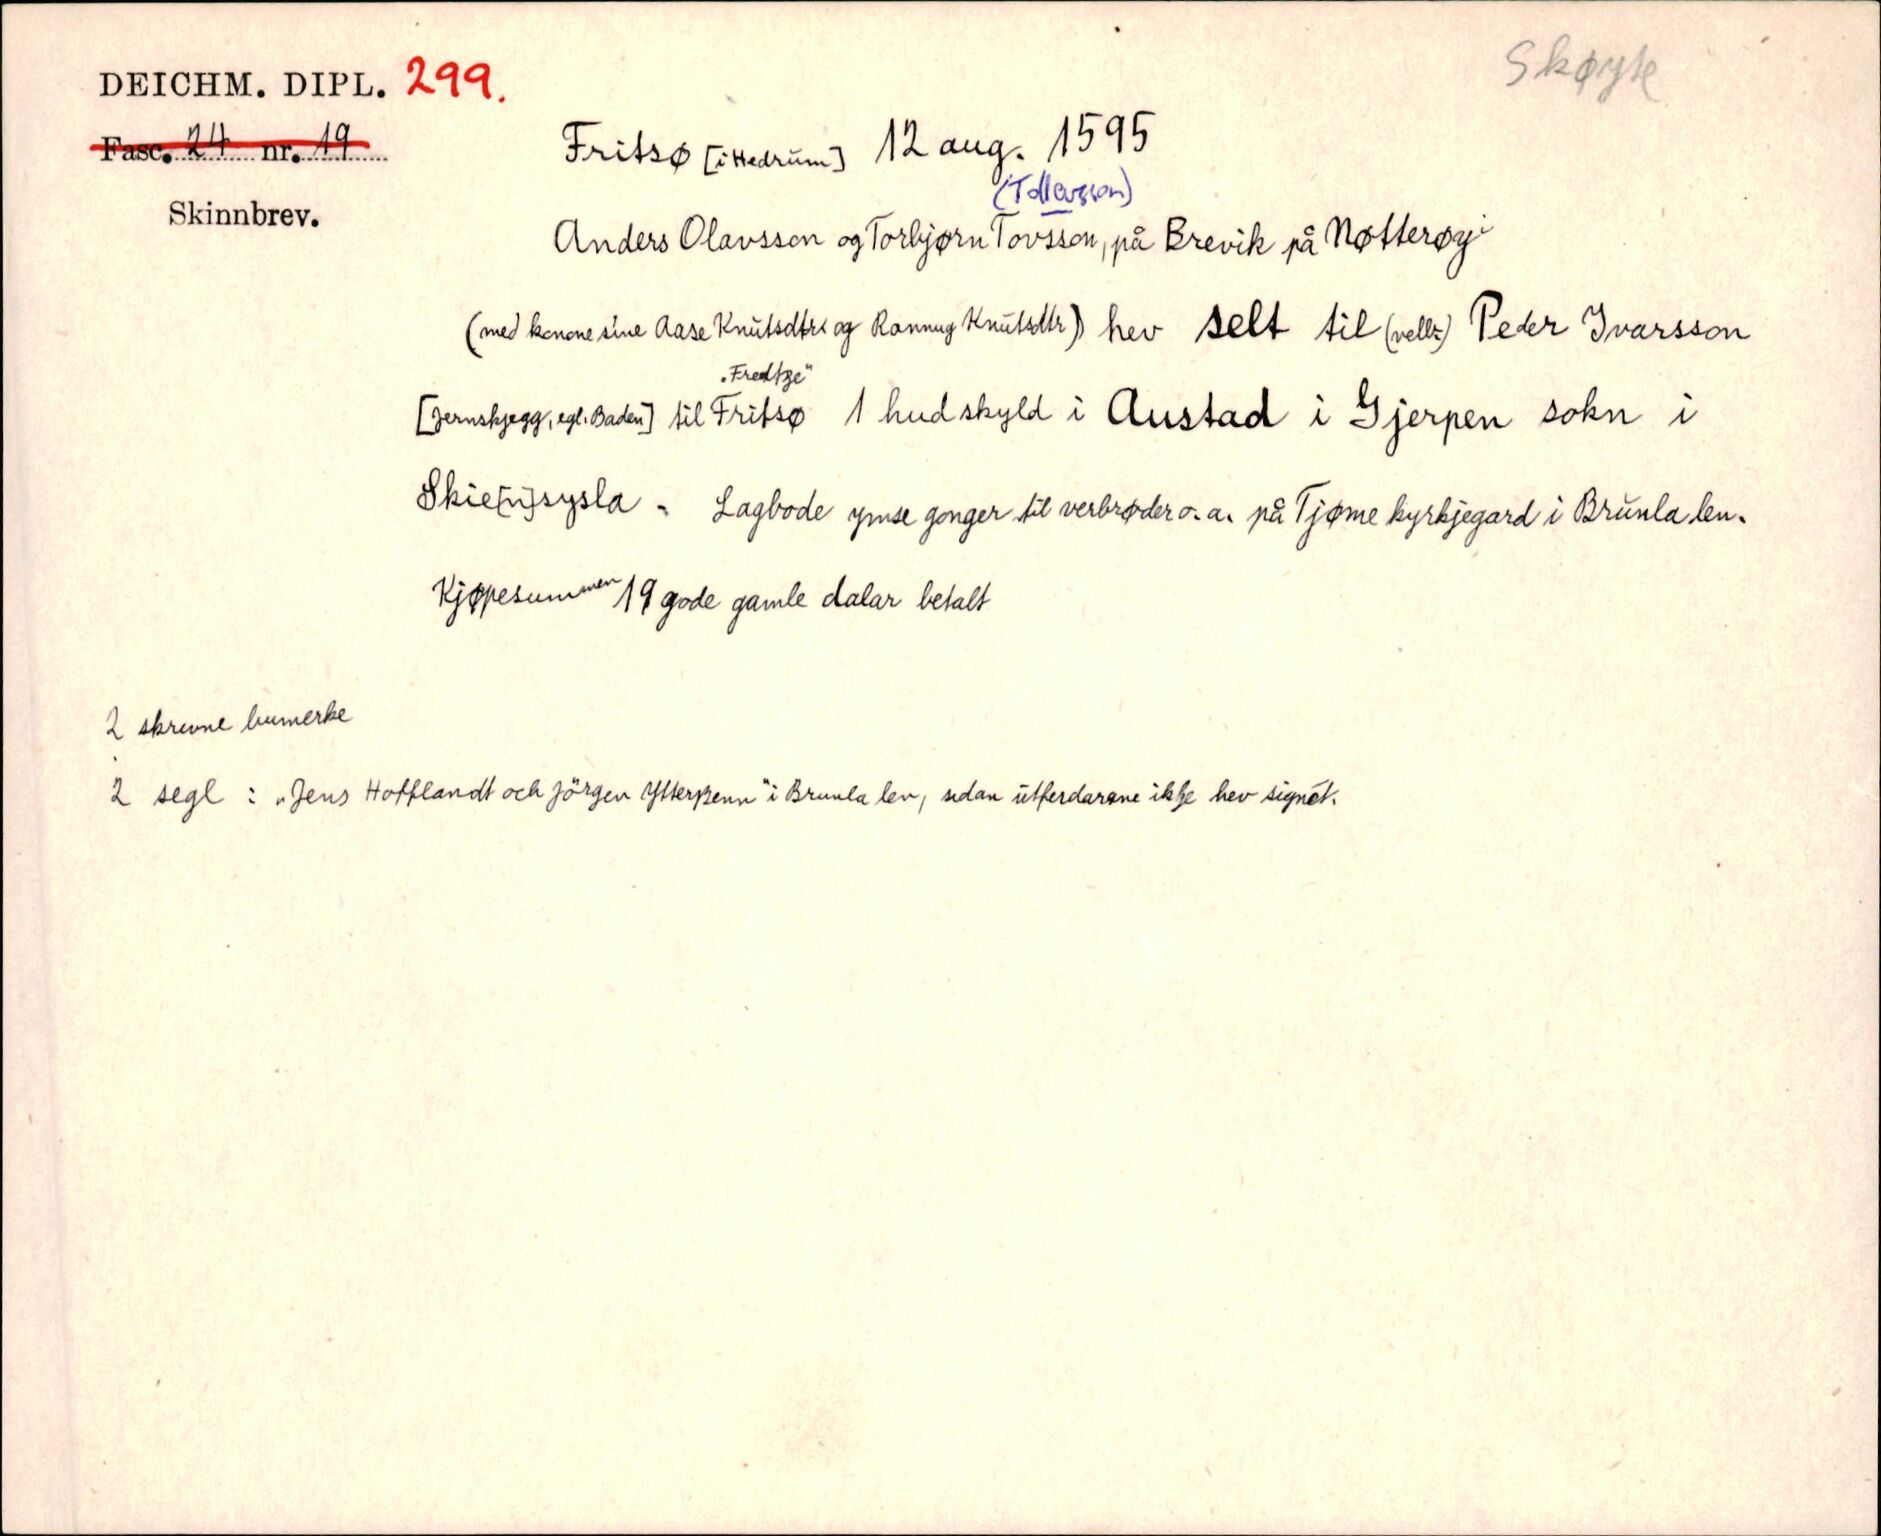 Skøyte
DEICHM. DIPL. 299.
Fasc. 24 nr. 19
Skinnbrev.
Fritsø [i Hedrum] 12 aug. 1595
(Tollevsson)
Anders Olavsson og Torbjørn Tovsson, på Brevik på Nøtterøy
(med konone sine Aase Knutsdtr. og Rannug Knutsdtr) hev selt til (velb.) Peder Ivarsson
„Fredtze"
[Jernskjegg, egl. Baden] til Fritsø 1 hudskyld i Austad i Gjerpen sokn i
Skie[n]sysla. Lagbode ymse gonger til verbrøder o.a. på Tjøme kyrkjegard i Brunla len.
Kjøpesummen 19 gode gamle dalar betalt
2 skrevne bumerke
2 segl : „Jens Hofflandt och Jörgen Ytterßenn" i Brunla len, sidan utferdarane ikkje hev signet.